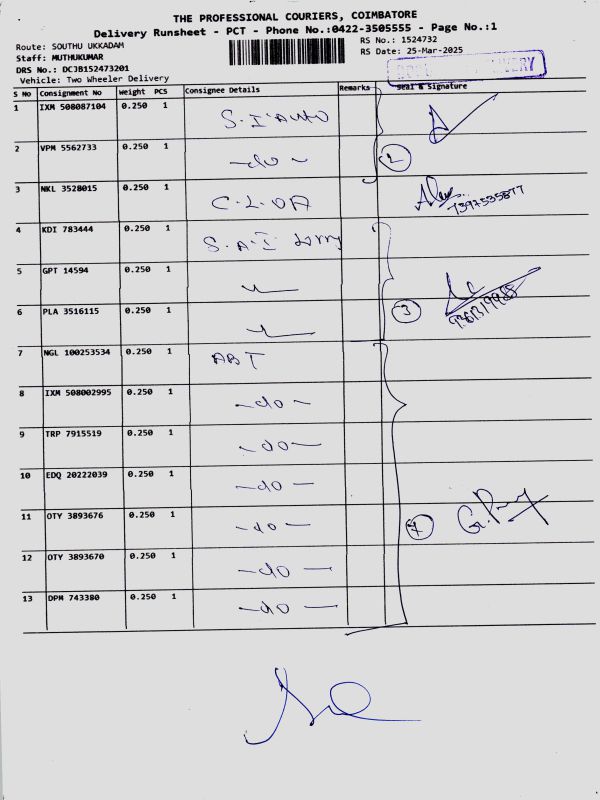 THE PROFESSIONAL COURIERS, COIMBATORE
Delivery Runsheet - PCT - Phone No.:0422-3505555 - Page No.:1
Route: SOUTHU UKKADAM RS No.: 1524732
Staff: MUTHUKUMAR RS Date: 25-Mar-2025
DRS No.: DCJB152473201
Vehicle: Two Wheeler Delivery
DELIVERY
S No Consignment No Weight PCS Consignee Details Remarks Seal & Signature
1 IXM 508087104 0.250 1 S.I AUTO
2 VPM 5562733 0.250 1 -do- 2
3 NKL 3528015 0.250 1 C.L.OA 7397535877
4 KDI 783444 0.250 1 S.A.I Lorry
5 GPT 14594 0.250 1
6 PLA 3516115 0.250 1 3
7 NGL 100253534 0.250 1 ABT
8 IXM 508002995 0.250 1 -do-
9 TRP 7915519 0.250 1 -do-
10 EDQ 20222039 0.250 1 -do-
11 OTY 3893676 0.250 1 -do- 7
12 OTY 3893670 0.250 1 -do-
13 DPM 743380 0.250 1 -do-